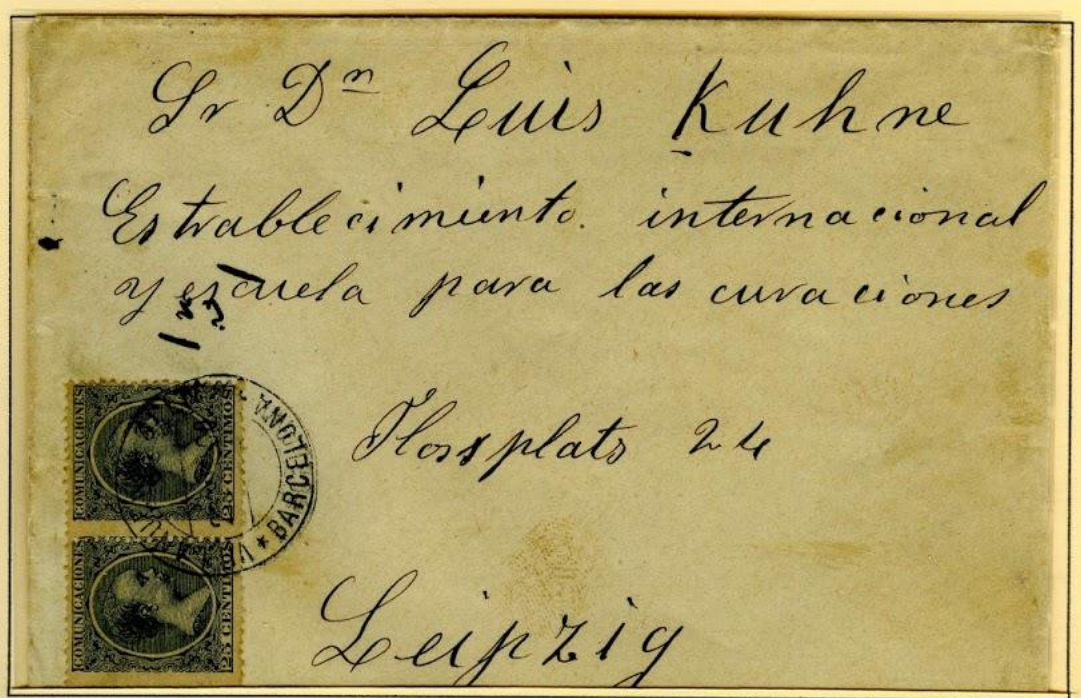 Sr Dn Luis Kuhne
Establecimiento. internacional
y escuela para las curaciones
Flossplats 24
Leipzig
COMUNICACIONES
25 CENTIMOS
BARCELONA
COMUNICACIONES
25 CENTIMOS